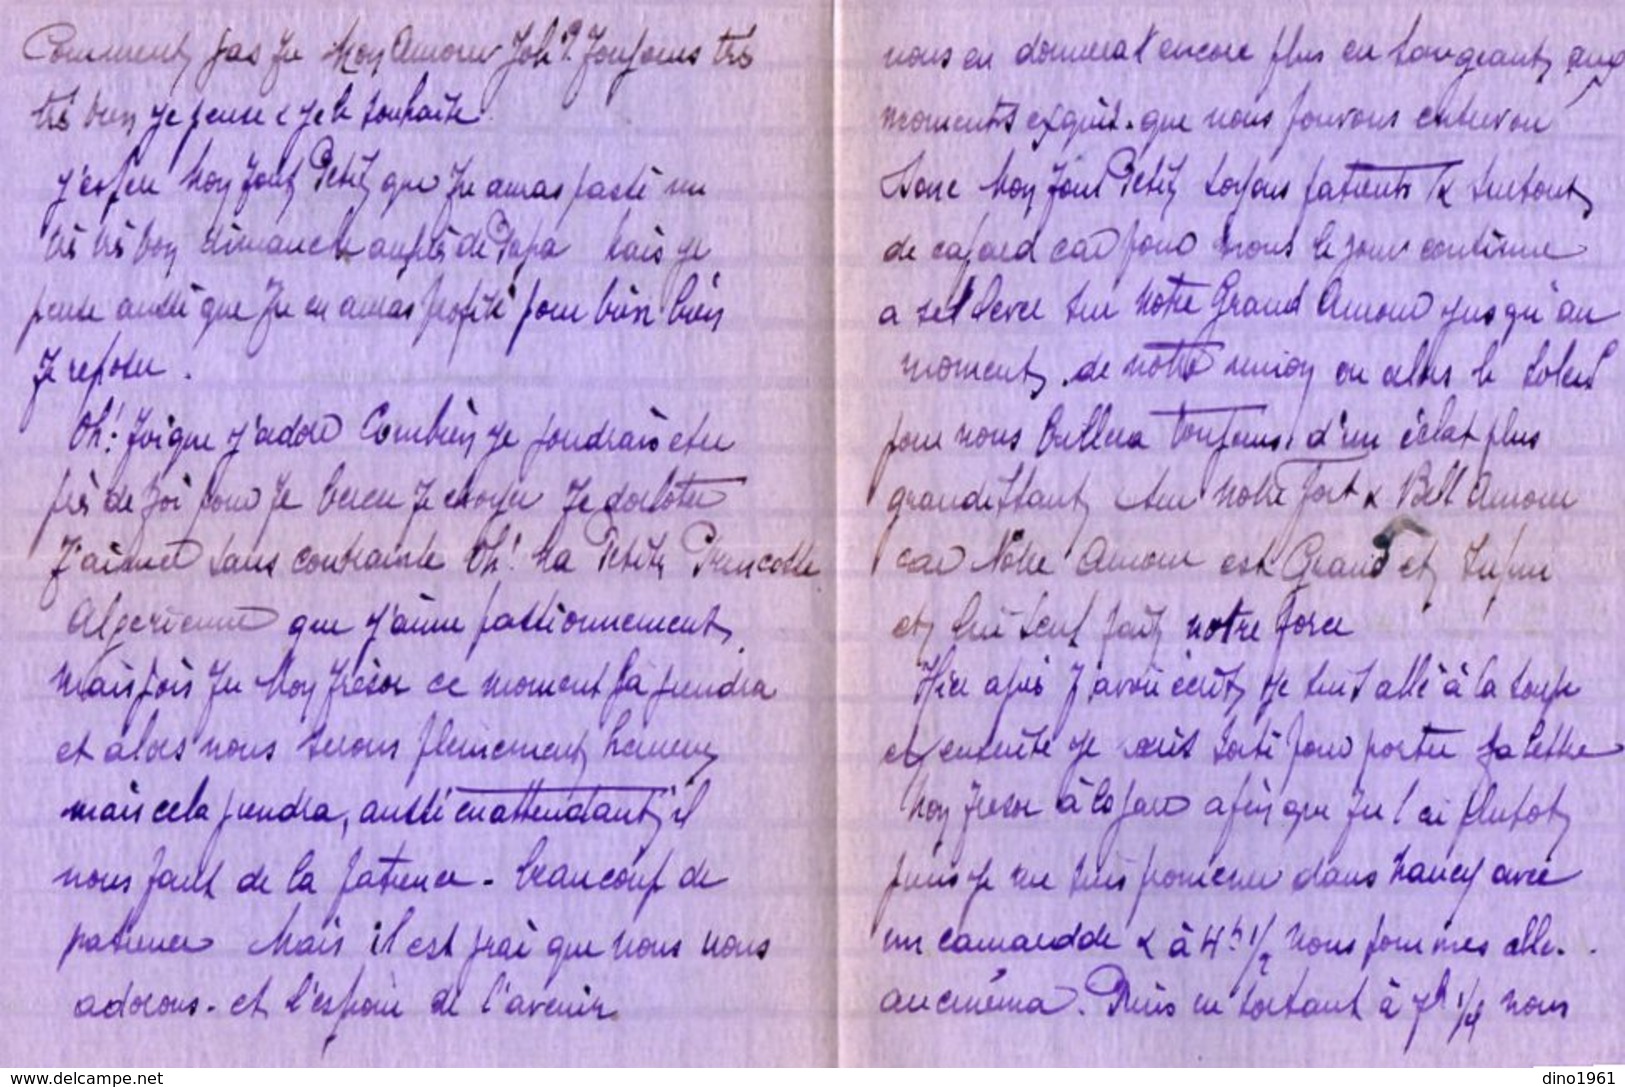 Comment vas Tu Mon Amour Joli? Toujours très
très bien je pense & je le souhaite.
J'espère Mon Tout Petit que Tu auras passé un
très très bon dimanche auprès de Papa mais je
pense aussi que Tu en auras profité pour bien bien
Te reposer.
Oh! Toi que j'adore Combien je voudrais etre
près de Toi pour Te bercer Te choyer Te dorloter
T'aimer sans contrainte Oh! Ma Petite
Algerienne que j'aime passionnement,
mais vois Tu Mon Trésor ce moment là viendra
et alors nous serons pleinement heureux
mais cela viendra, aussi en attendant, il
nous faut de la patience - beaucoup de
patience Mais il est vrai que nous nous
adorons. et l'espoir de l'avenir
nous en donnerat encore plus en songeant, aux
moments exquis. que nous pouvons entrevoir
Donc Mon Tout Petit soyons patients & surtout,
de cafard car pour nous le jour continue
a se lever sur Notre Grand Amour jusqu'au
moment, de notre union ou alors le soleil
pour nous brillera toujours, d'un éclat plus
grandissant sur Notre Fort & Bell Amour
car Notre Amour est Grand et, Infini
et, lui seul fait, notre force
Hier après T'avoir écrit, je suis allé à la soupe
et ensuite je suis sorti pour porter Ta lettre
Mon Trésor à la gare afin que Tu l'ai plutot,
puis je me suis promener dans Nancy avec
un camaradde & à 4h 1/2 Nous sommes alle.
au cinéma. Puis en sortant à 7h 1/4 nous
dino1961